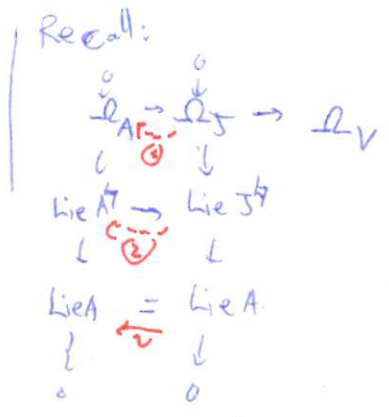 Recall:
0 0
Ω_A → Ω_J → Ω_V
①
Lie A^♮ → Lie J^♮
②
Lie A = Lie A.
~
0 0